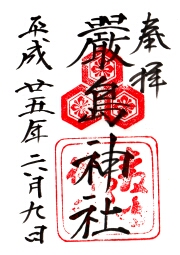 奉拝
嚴島神社
平成廿五年二月九日